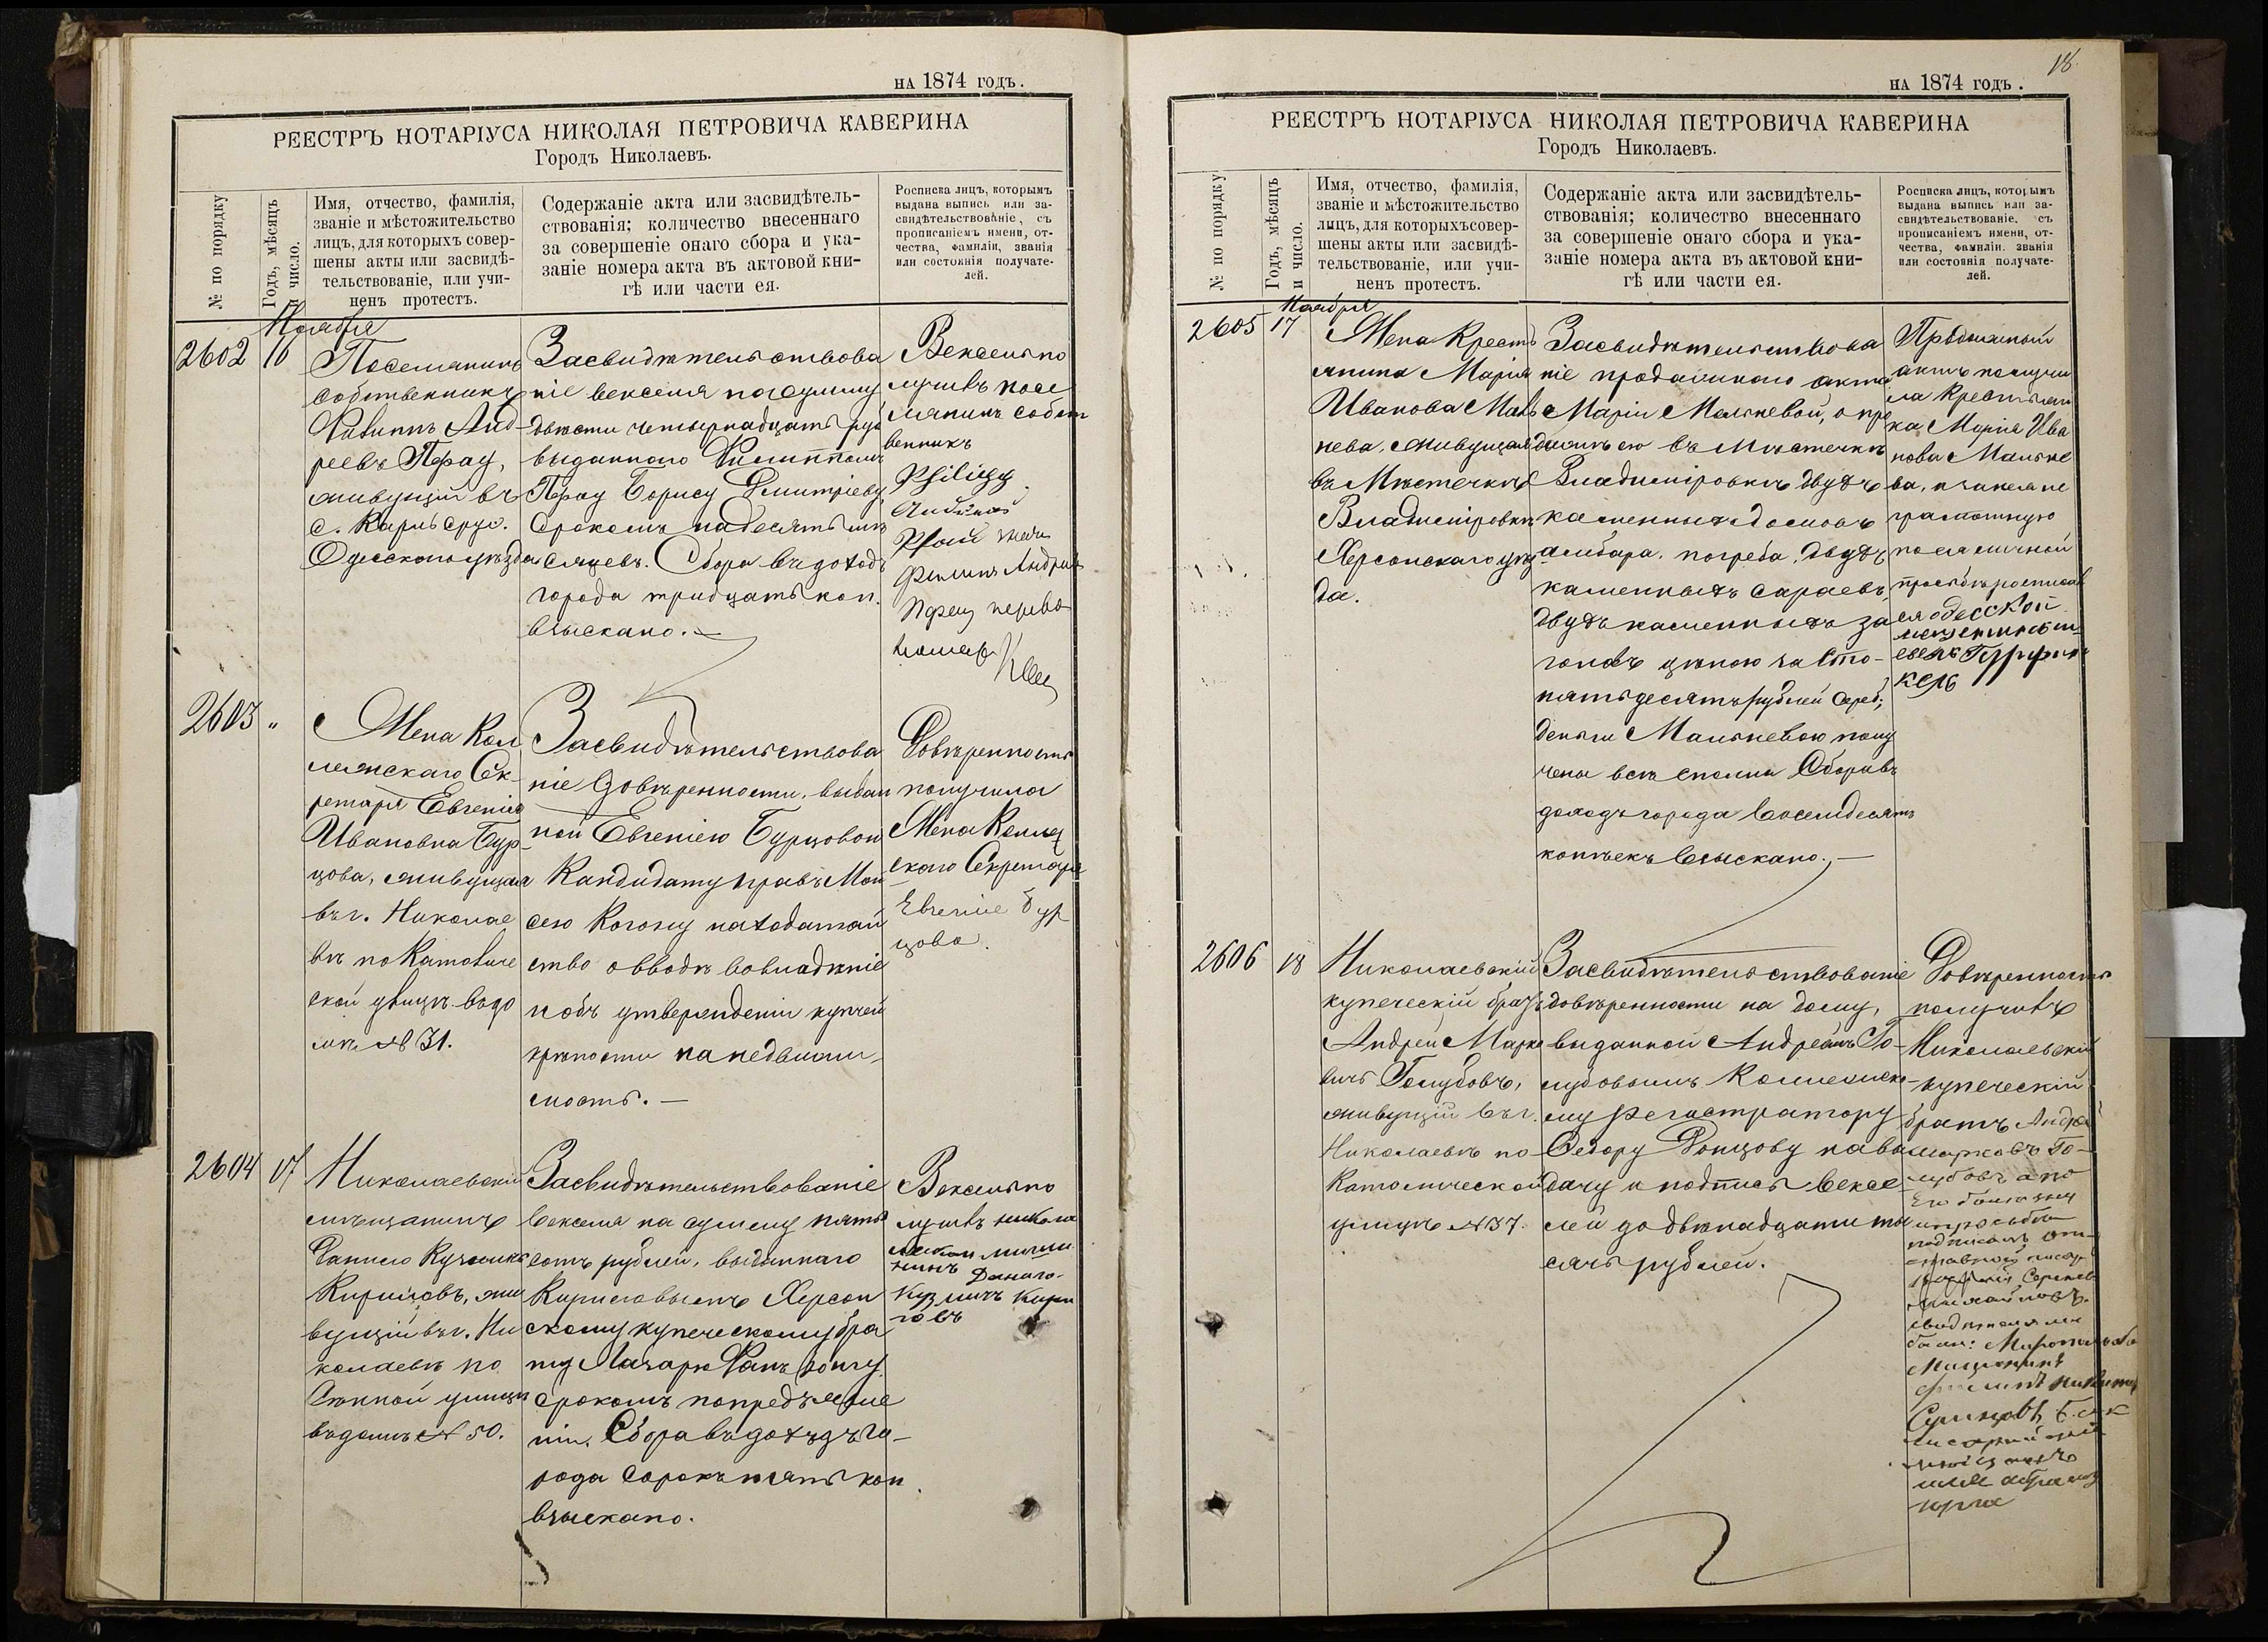 на 1874 годъ.
РЕЕСТРЪ НОТАРІУСА НИКОЛАЯ ПЕТРОВИЧА КАВЕРИНА
Городъ Николаевъ.
№ по порядку
Годъ, мѣсяцъ
и число.
Имя, отчество, фамилія,
званіе и мѣстожительство
лицъ, для которыхъ совер-
шены акты или засвидѣ-
тельствованіе, или учи-
ненъ протестъ.
Содержаніе акта или засвидѣтель-
ствованія; количество внесеннаго
за совершеніе онаго сбора и ука-
заніе номера акта въ актовой кни-
гѣ или части ея.
Росписка лицъ, которымъ
выдана выпись или за-
свидѣтельствованіе, съ
прописаніемъ имени, от-
чества, фамиліи, званія
или состоянія получате-
лей.
Ноября
2602
16
Поселянинъ
собственникъ
Филиппъ Анд-
реевъ Пфау,
живущій въ
с. Карльсруэ.
Одесскаго уѣзда
Засвидѣтельствова
ніе векселя на сумму
двѣсти четырнадцать руб
выданнаго Филиппомъ
Пфау Борису Дмитріеву
срокомъ на десять мѣ
сяцевъ. Сбора въ доходъ
города тридцать коп.
взыскано.—
Вексель по
лучивъ посе
лянинъ собст
венникъ
2603
"
Жена Кол
лежскаго Сек-
ретаря Евгенія
Ивановна Бур
цова, живущая
въ г. Николае
вѣ по Католиче
ской улицѣ въ до
мѣ № 31.
Засвидѣтельствова
ніе довѣренности, выдан
ной Евгеніею Бурцовою
Кандидату правъ Мои
сею Когону на ходатай
ство о вводѣ во владѣніе
и объ утвержденіи купчей
крѣпости на недвижи-
мость.—
Довѣренность
получила
Жена Коллеж
скаго Секретаря
Евгенія Бур
цова.
2604
17
Николаевскій
мѣщанинъ
Данило Кузмичъ
Кириловъ, жи
вущій въ г. Ни
колаевѣ по
Сѣнной улицѣ
въ домѣ № 50.
Засвидѣтельствованіе
векселя на сумму пять
сотъ рублей, выданнаго
Кириловымъ Херсон
скому купеческому бра
ту Лазарю
срокомъ по предъявле
ніи. Сбора въ доходъ го-
рода сорокъ пять коп.
взыскано.
Вексель по
лучивъ никола
Данило
Кузмичъ Кири
ловъ
18
на 1874 годъ.
РЕЕСТРЪ НОТАРІУСА НИКОЛАЯ ПЕТРОВИЧА КАВЕРИНА
Городъ Николаевъ.
№ по порядку
Годъ, мѣсяцъ
и число.
Имя, отчество, фамилія,
званіе и мѣстожительство
лицъ, для которыхъ совер-
шены акты или засвидѣ-
тельствованіе, или учи-
ненъ протестъ.
Содержаніе акта или засвидѣтель-
ствованія; количество внесеннаго
за совершеніе онаго сбора и ука-
заніе номера акта въ актовой кни-
гѣ или части ея.
Росписка лицъ, которымъ
выдана выпись или за-
свидѣтельствованіе, съ
прописаніемъ имени, от-
чества, фамиліи, званія
или состоянія получате-
лей.
Ноября
2605
17
Жена Кресть
янина Марія
Иванова Маль
нева, живущая
въ Мѣстечкѣ
Владиміровкѣ
Херсонскаго уѣз
да.
Засвидѣтельствова
ніе продажнаго акта
Маріи Мальневой, о про
дажѣ ею въ Мѣстечкѣ
Владиміровкѣ двухъ
каменныхъ домовъ
амбара, погреба, двухъ
каменныхъ сараевъ,
двухъ каменныхъ за
гоновъ цѣною за сто-
пятьдесятъ рублей сереб.;
деньги Мальневою полу
чены всѣ сполна Сбора въ
доходъ города восемьдесятъ
копѣекъ взыскано.—
Продажный
актъ получи
ла Крестьян
ка Марія Ива
нова Мальне
ва, а за нея не
грамотную
по ея личной
просьбѣ росписал
ся одесской
2606
18
Николаевскій
купеческій братъ
Андрей Марко
вичъ Голубовъ,
живущій въ г.
Николаевѣ по
Католической
улицѣ № 37.
Засвидѣтельствованіе
довѣренности на дому,
выданной Андреемъ Го-
лубовымъ Коллежско-
му Регистратору
Федору Донцову на вы
дачу и подпись вексе-
лей до двѣнадцати ты
сячъ рублей.
Довѣренность
получивъ
Николаевскій
купеческій
братъ Андрей
Марковъ Го-
лубовъ а по